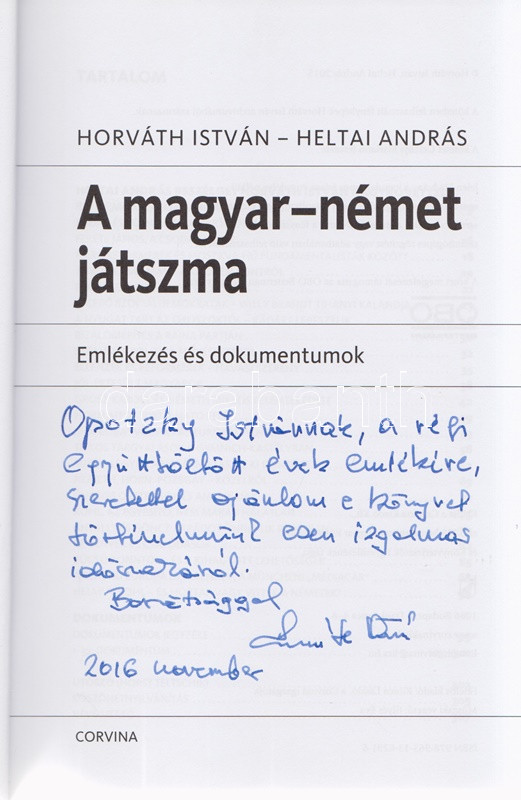 HORVÁTH ISTVÁN – HELTAI ANDRÁS
A magyar–német
játszma
Emlékezés és dokumentumok
darabanth
Opotzky Istvánnak, a régi
együtttöltött évek emlékére,
szeretettel ajánlom e könyvet
történelmünk ezen izgalmas
időszakáról.
Barátsággal
2016 november
CORVINA